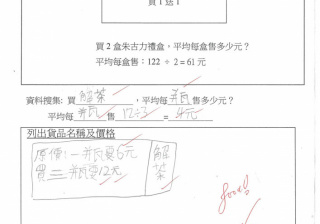 買 1 送 1
買 2 盒朱古力禮盒，平均每盒售多少元？
平均每盒：122 ÷ 2 = 61 元
資料搜集: 買 解茶 ，平均每 瓶 售多少元？
平均每 瓶 售 12÷3 = 4元
列出貨品名稱及價格
原價：一瓶買6元
買二 瓶買12元
解茶
good!